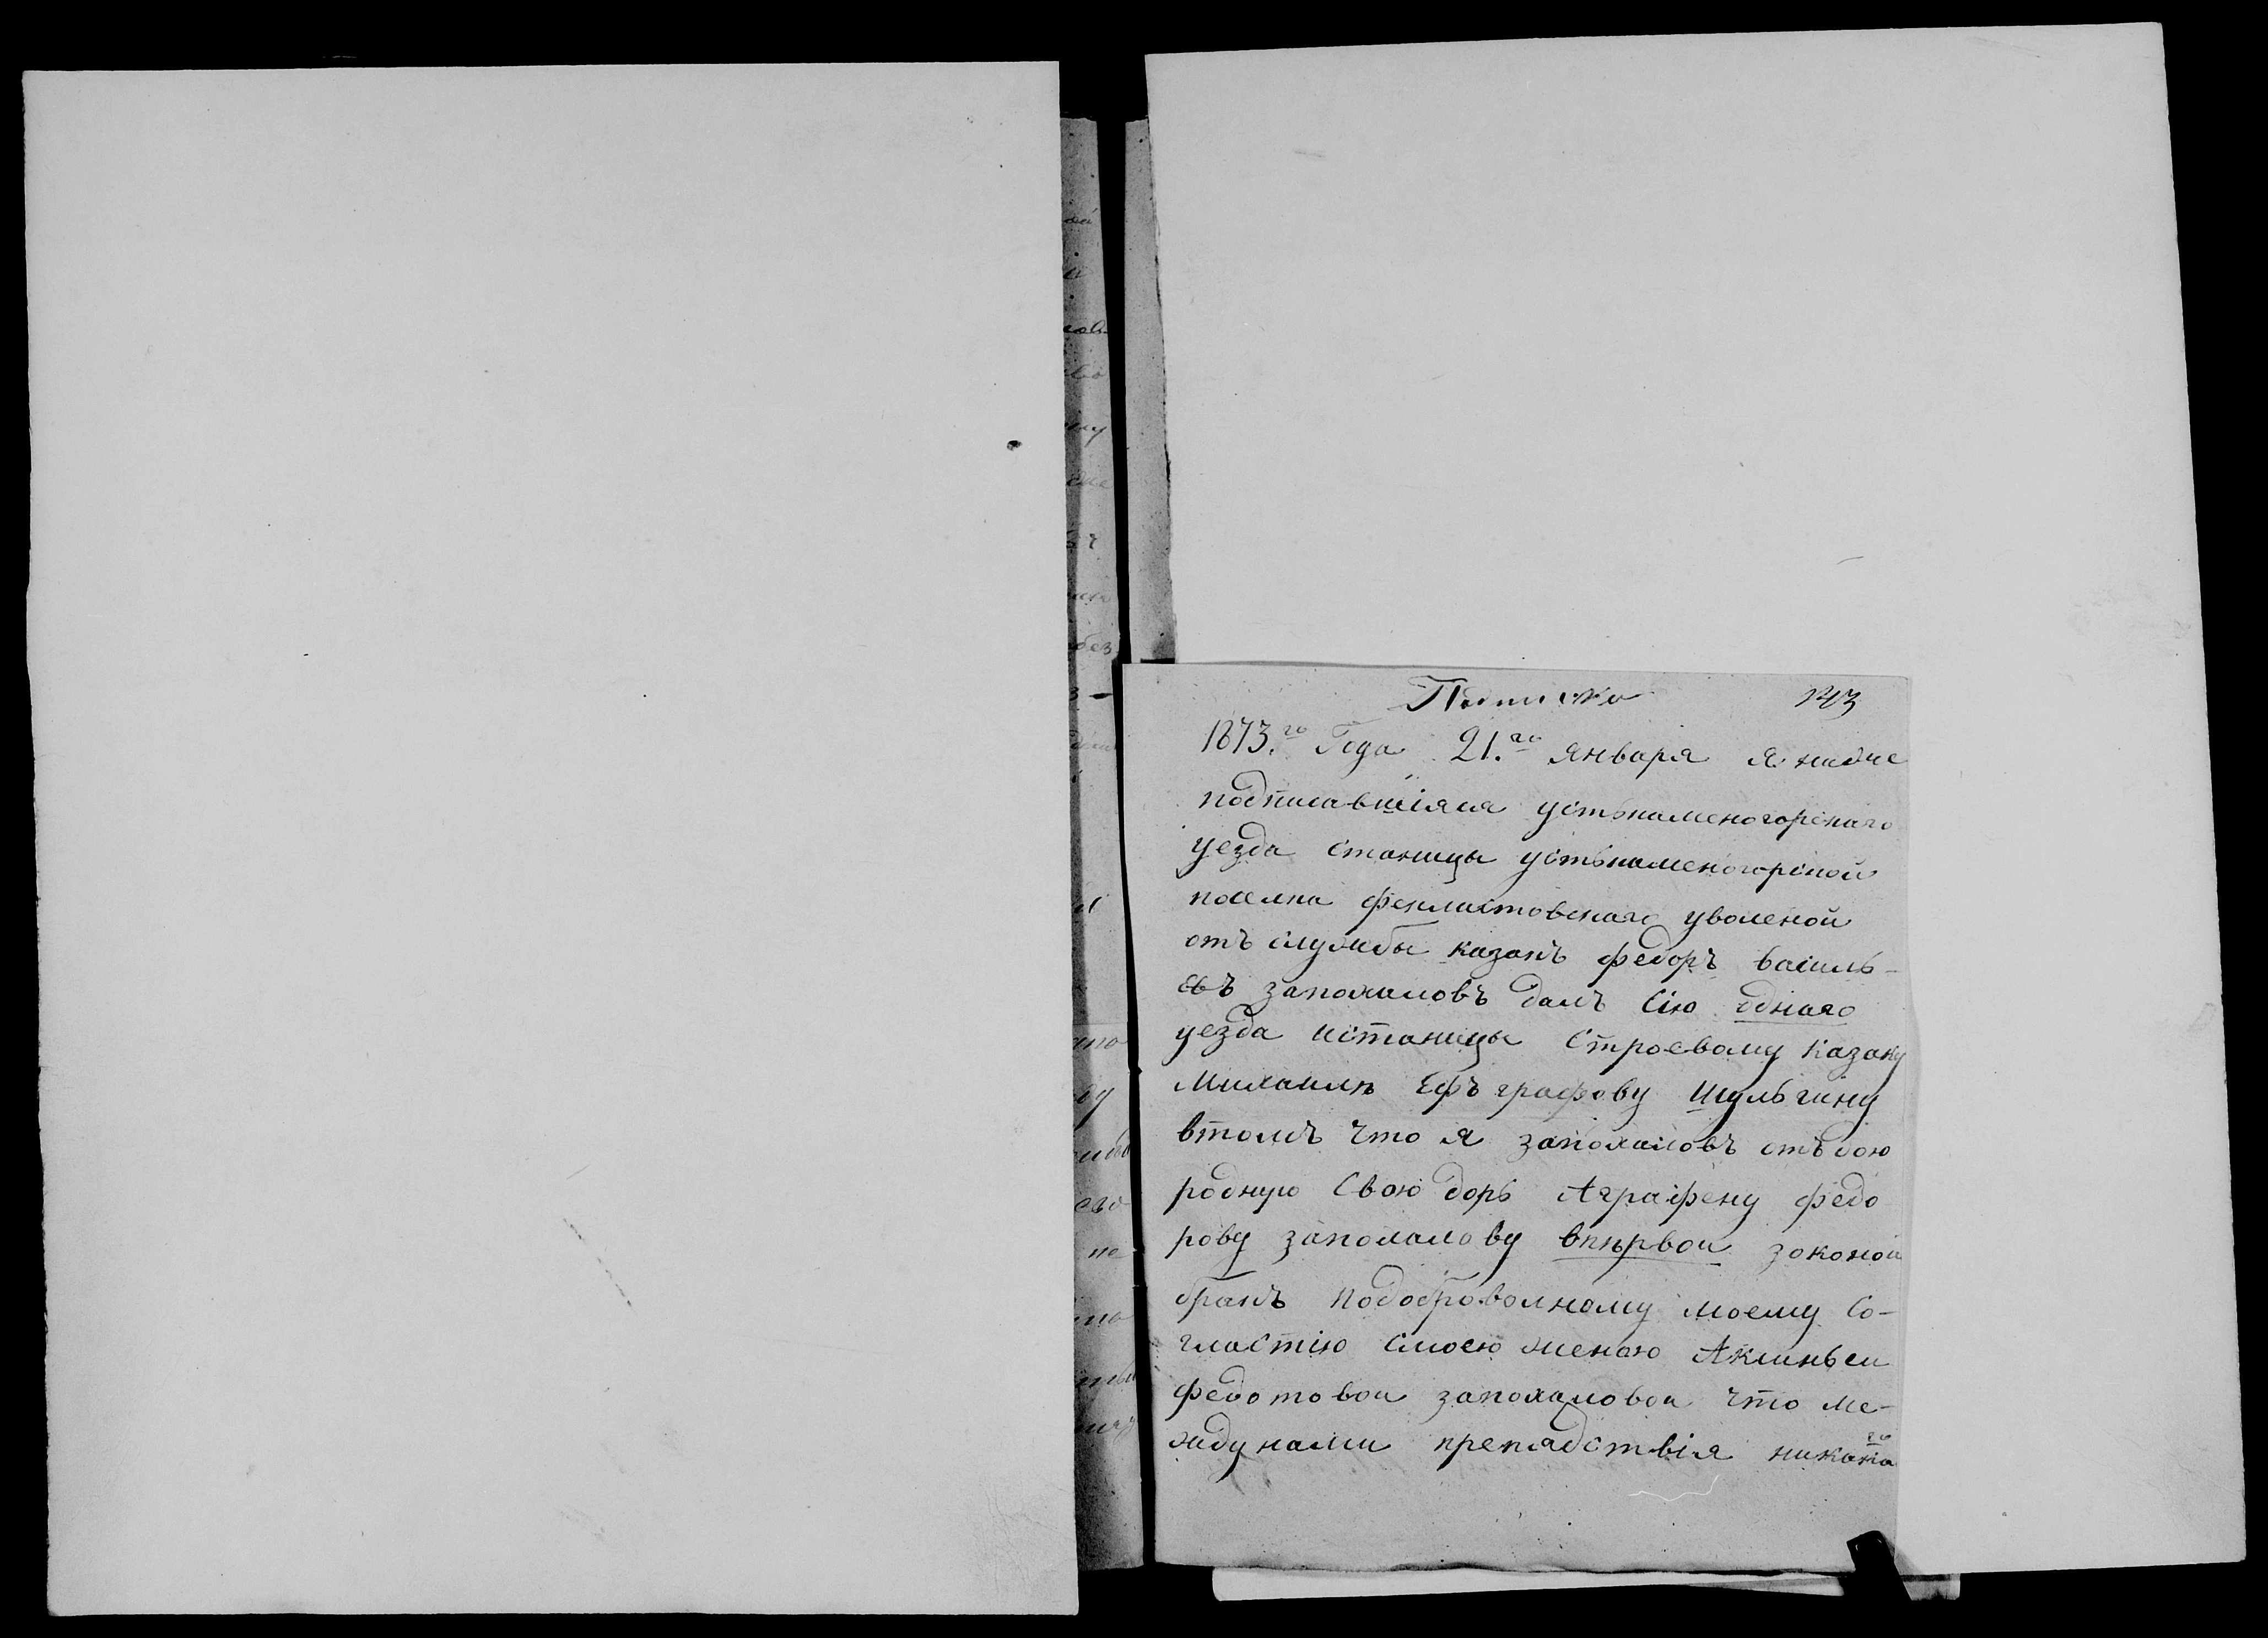 Подписка 143
1873.го Года 21.го января я ниже
подписавшіяся устькаменогорскаго
уезда станицы устькаменогорской
поселка феклистовскаго уволеной
отъ службы казакъ федоръ василь-
евъ заполамовъ далъ сію однаго
уезда истаницы строевому казаку
Михаилѣ Ефъграфову Шульгину
втомъ что я отъдою
родную Свою дорь Аграфену федо
рову впѣрвои законои
бракъ подобровольному моему со-
гластію смоею женою Акиньеи
федотовои что ме-
жду нами препядствія никакаго